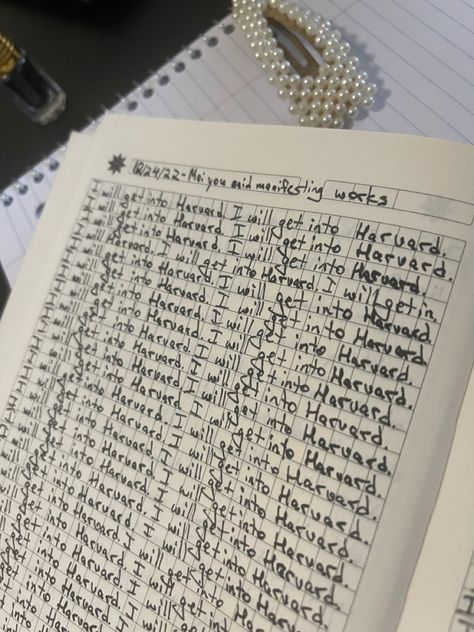 12/24/22 - Mei you said manifesting works
I will get into Harvard. I will get into Harvard.
I will get into Harvard. I will get into Harvard.
I will get into Harvard. I will get into Harvard.
I will get into Harvard. I will get in
Harvard. I will get into Harvard.
I will get into Harvard. I will get into Harvard.
I will get into Harvard. I will get into Harvard.
I will get into Harvard. I will get into Harvard.
I will get into Harvard. I will get into Harvard.
I will get into Harvard. I will get into Harvard.
I will get into Harvard. I will get into Harvard.
I will get into Harvard. I will get into Harvard.
I will get into Harvard. I will get into Harvard.
I will get into Harvard. I will get into Harvard.
I will get into Harvard. I will get into Harvard.
I will get into Harvard. I will get into Harvard.
get into Harvard. I will get into Harvard.
get into Harvard. I will get into Harvard.
into Harvard. I will get into